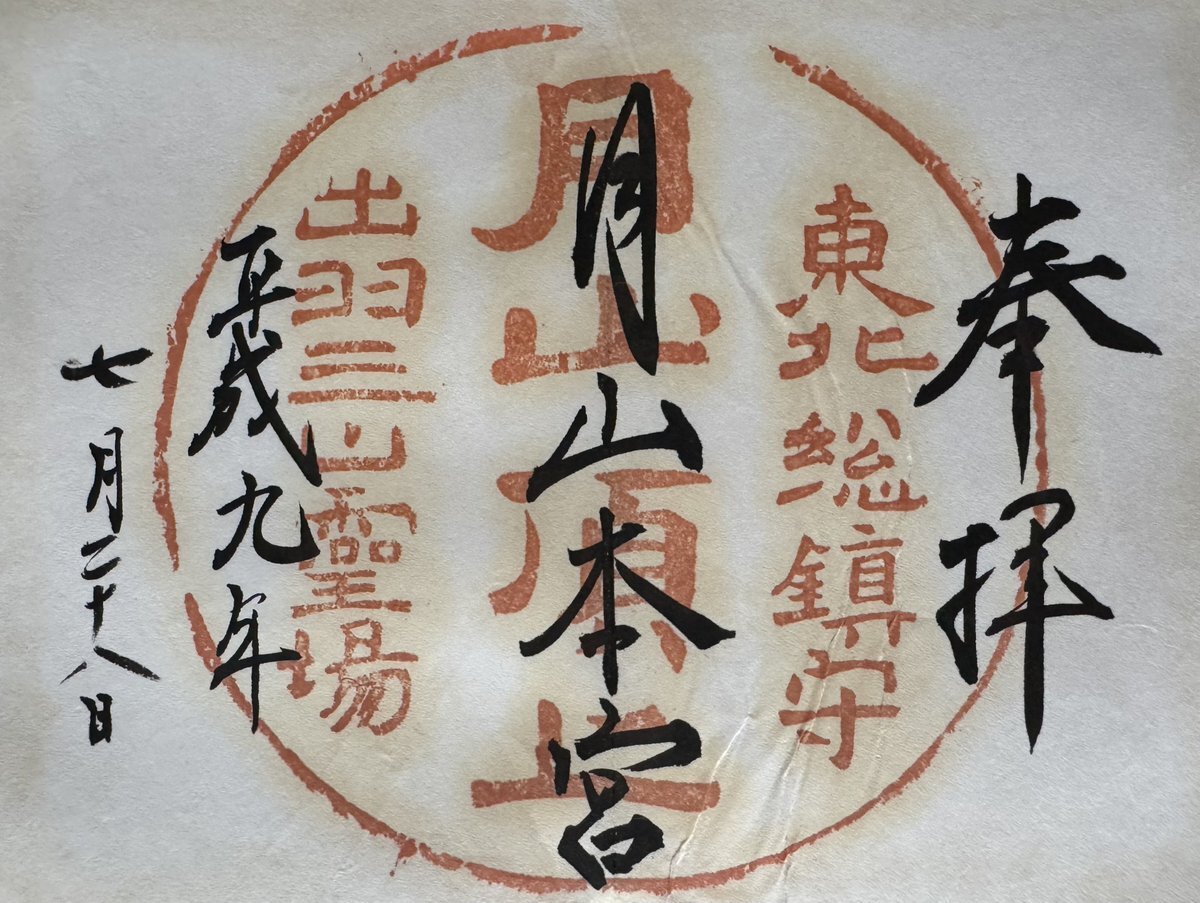 奉拝
東北総鎮守
月山頂上
月山本宮
出羽三山霊場
平成九年
七月二十八日